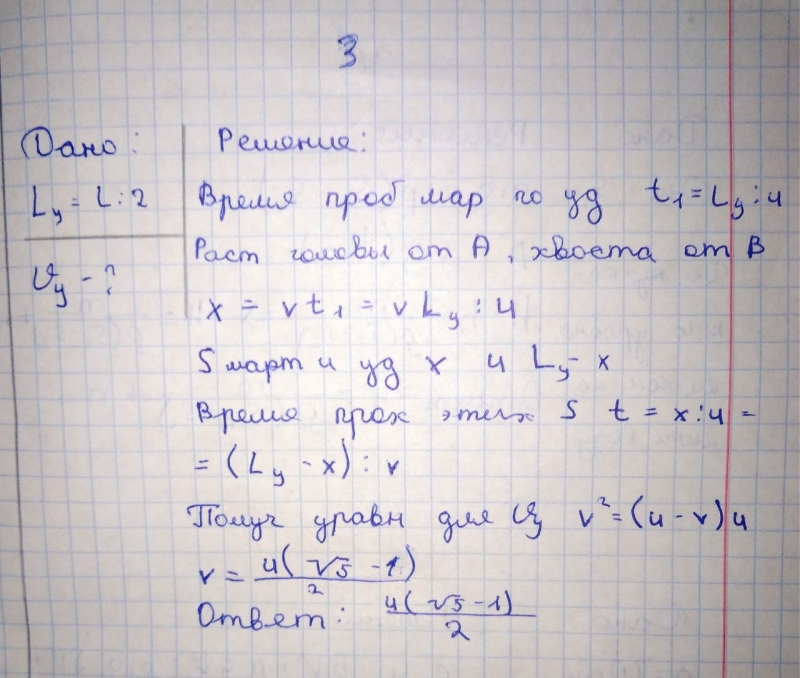 3
Дано:
Lу = L:2
υу - ?
Решение:
Время проб мар по уд t₁ = Lу : u
Раст головы от А, хвоста от В
x = v t₁ = v Lу : u
S март и уд x и Lу - x
Время прох этих S t = x : u =
= (Lу - x) : v
Получ уравн для υу v² = (u - v) u
v = u(√5 - 1) / 2
Ответ: u(√5 - 1) / 2